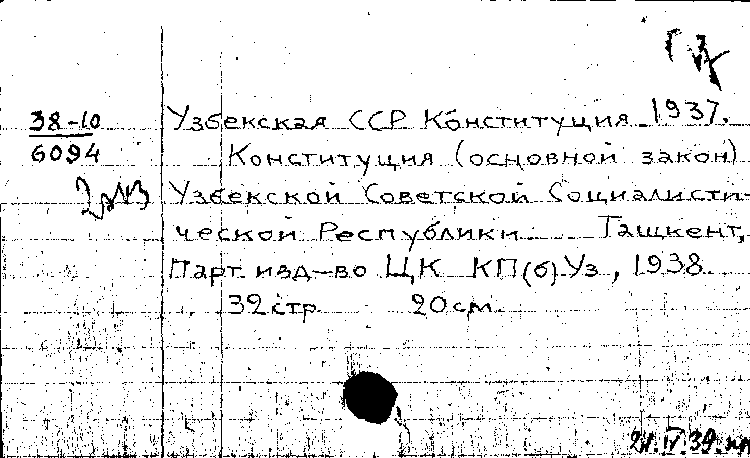 38-10
6094
2 экз
Узбекская ССР Конституция 1937.
Конституция (основной закон)
Узбекской Советской Социалисти-
ческой Республики Ташкент,
Парт. изд-во ЦК КП(б) Уз, 1938.
32 стр 20 см.
21.IV.39.